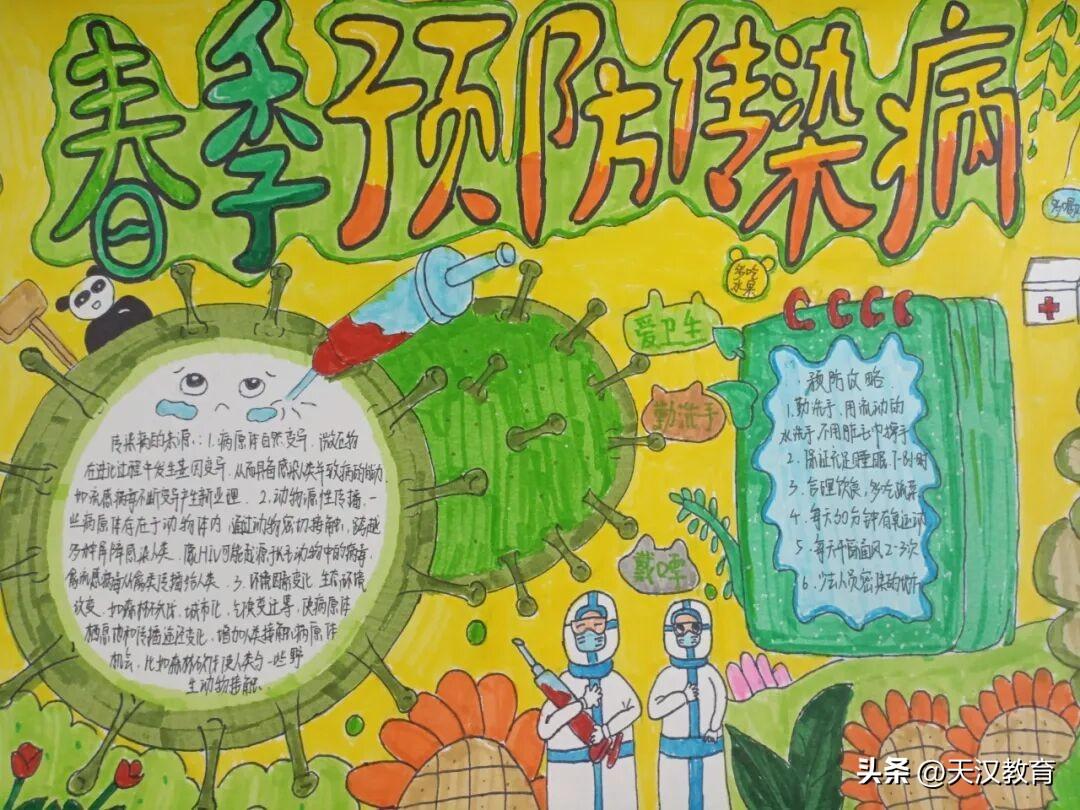 春季预防传染病
多吃
水果
爱卫生
勤洗手
戴口罩
传染病的来源：1.病原体自然变异，微生物
在进化过程中发生基因变异，从而具备感染人类并致病的能力，
如流感病毒不断变异产生新亚型．2.动物源性传播，一
些病原体存在于动物体内，通过动物密切接触，跨越
物种屏障感染人类．像HIV可能起源于动物中的病毒，
禽流感病毒从禽类传播给人类．3.环境因素变化，生态环境
改变．如森林砍伐，城市化，气候变迁等，使病原体
栖息地和传播途径变化，增加人类接触病原体
机会，比如森林砍伐使人类与一些野
生动物接触．
预防攻略
1.勤洗手，用流动的
水洗手，不用脏毛巾擦手
2.保证充足睡眠，7-8小时
3.合理饮食，多吃蔬菜
4.每天30分钟有氧运动
5.每天开窗通风2-3次
6.少去人员密集的场所
头条 @天汉教育